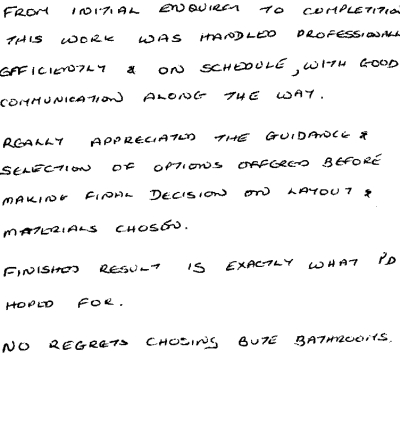 FROM INITIAL ENQUIREY TO COMPLETITION
THIS WORK WAS HANDLED PROFESSIONALLY
EFFICIENTLY & ON SCHEDULE, WITH GOOD
COMMUNICATION ALONG THE WAY.
REALLY APPRECIATED THE GUIDANCE &
SELECTION OF OPTIONS OFFERED BEFORE
MAKING FINAL DECISION ON LAYOUT &
MATERIALS CHOSEN.
FINISHED RESULT IS EXACTLY WHAT I'D
HOPED FOR.
NO REGRETS CHOSING BUTE BATHROOMS.